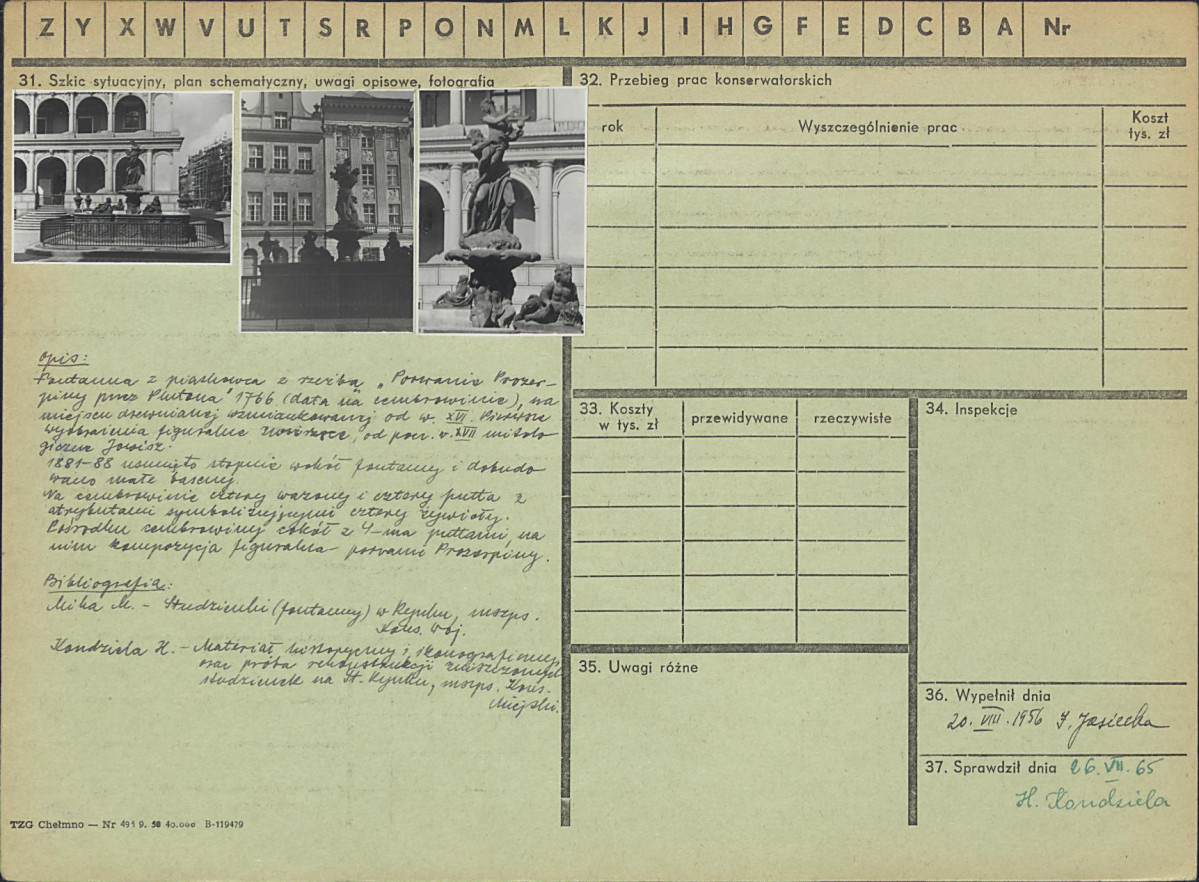 Z Y X W V U T S R P O N M L K J I H G F E D C B A Nr
31. Szkic sytuacyjny, plan schematyczny, uwagi opisowe, fotografia
opis:
Fontanna z piaskowca z rzeźbą „Porwanie Prozer-
piny przez Plutona" 1766 (data na cembrowinie), na
miejscu drewnianej wzmiankowanej od w. XVI. Pierwsze
wyobrażenia figuralne zwierzęce, od pocz. w. XVII mitolo
giczne Jowisz.
1881-88 usunięto stopnie wokół fontanny i dobudo
wano małe baseny.
Na cembrowinie cztery wazony i cztery putta z
atrybutami symbolizującymi cztery żywioły.
Pośrodku cembrowiny cokół z 4-ma puttami, na
nim kompozycja figuralna porwania Prozerpiny.
Bibliografia:
Mika M. - Studzienki (fontanny) w Rynku, mszps.
Kons. Woj.
Kondziela H. - Materiał historyczny i ikonograficzny
oraz próba rekonstrukcji zniszczonych
studzienek na St. Rynku, mszps. Kons.
Miejski.
TZG Chełmno — Nr 9. 58 40.000 B-119479
32. Przebieg prac konserwatorskich
rok Wyszczególnienie prac Koszt
tys. zł
33. Koszty
w tys. zł
przewidywane rzeczywiste
34. Inspekcje
35. Uwagi różne
36. Wypełnił dnia
20. VIII. 1956 J. Jasiecka
37. Sprawdził dnia 26. VII. 65
H. Kondziela